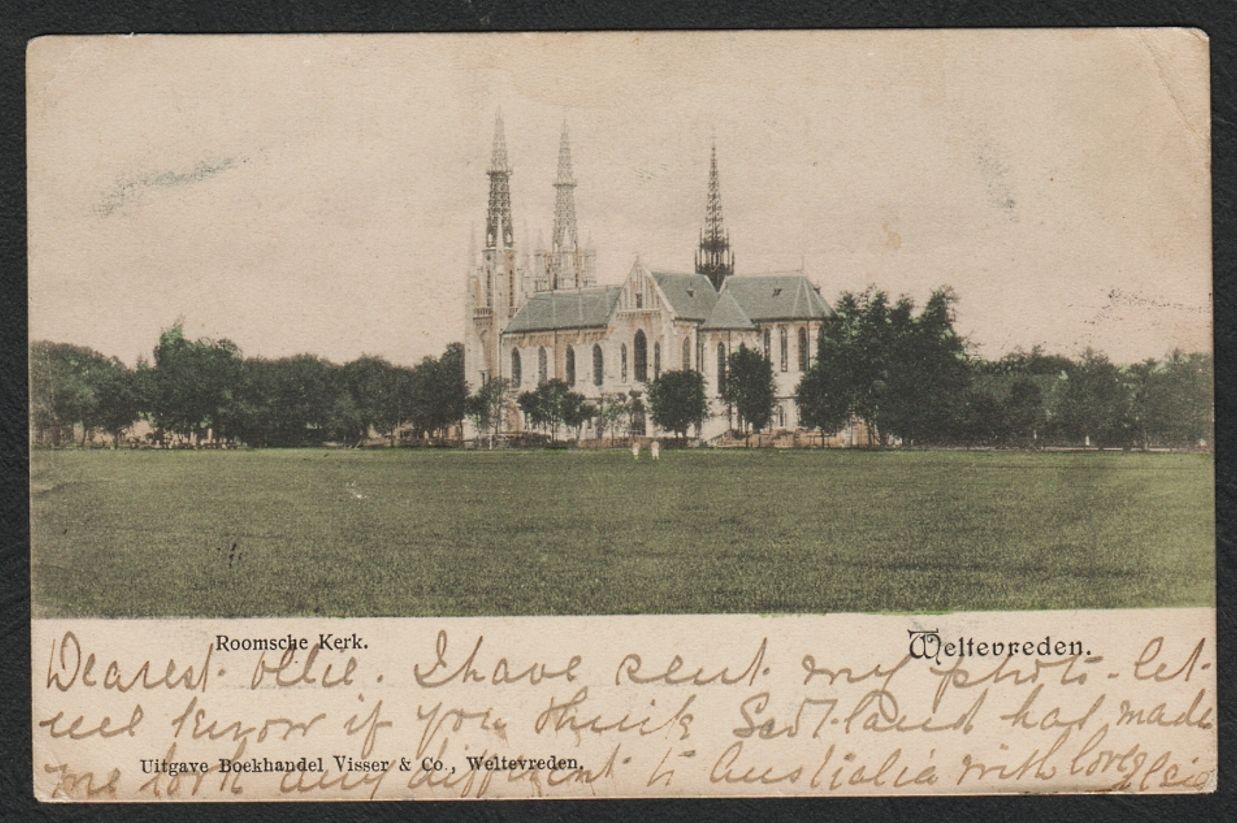 Roomsche Kerk.
Weltevreden.
Dearest Ollie. I have sent my photo. let
me know if you think Scotland has made
Uitgave Boekhandel Visser & Co., Weltevreden.
me look any different to Australia with love Elsie